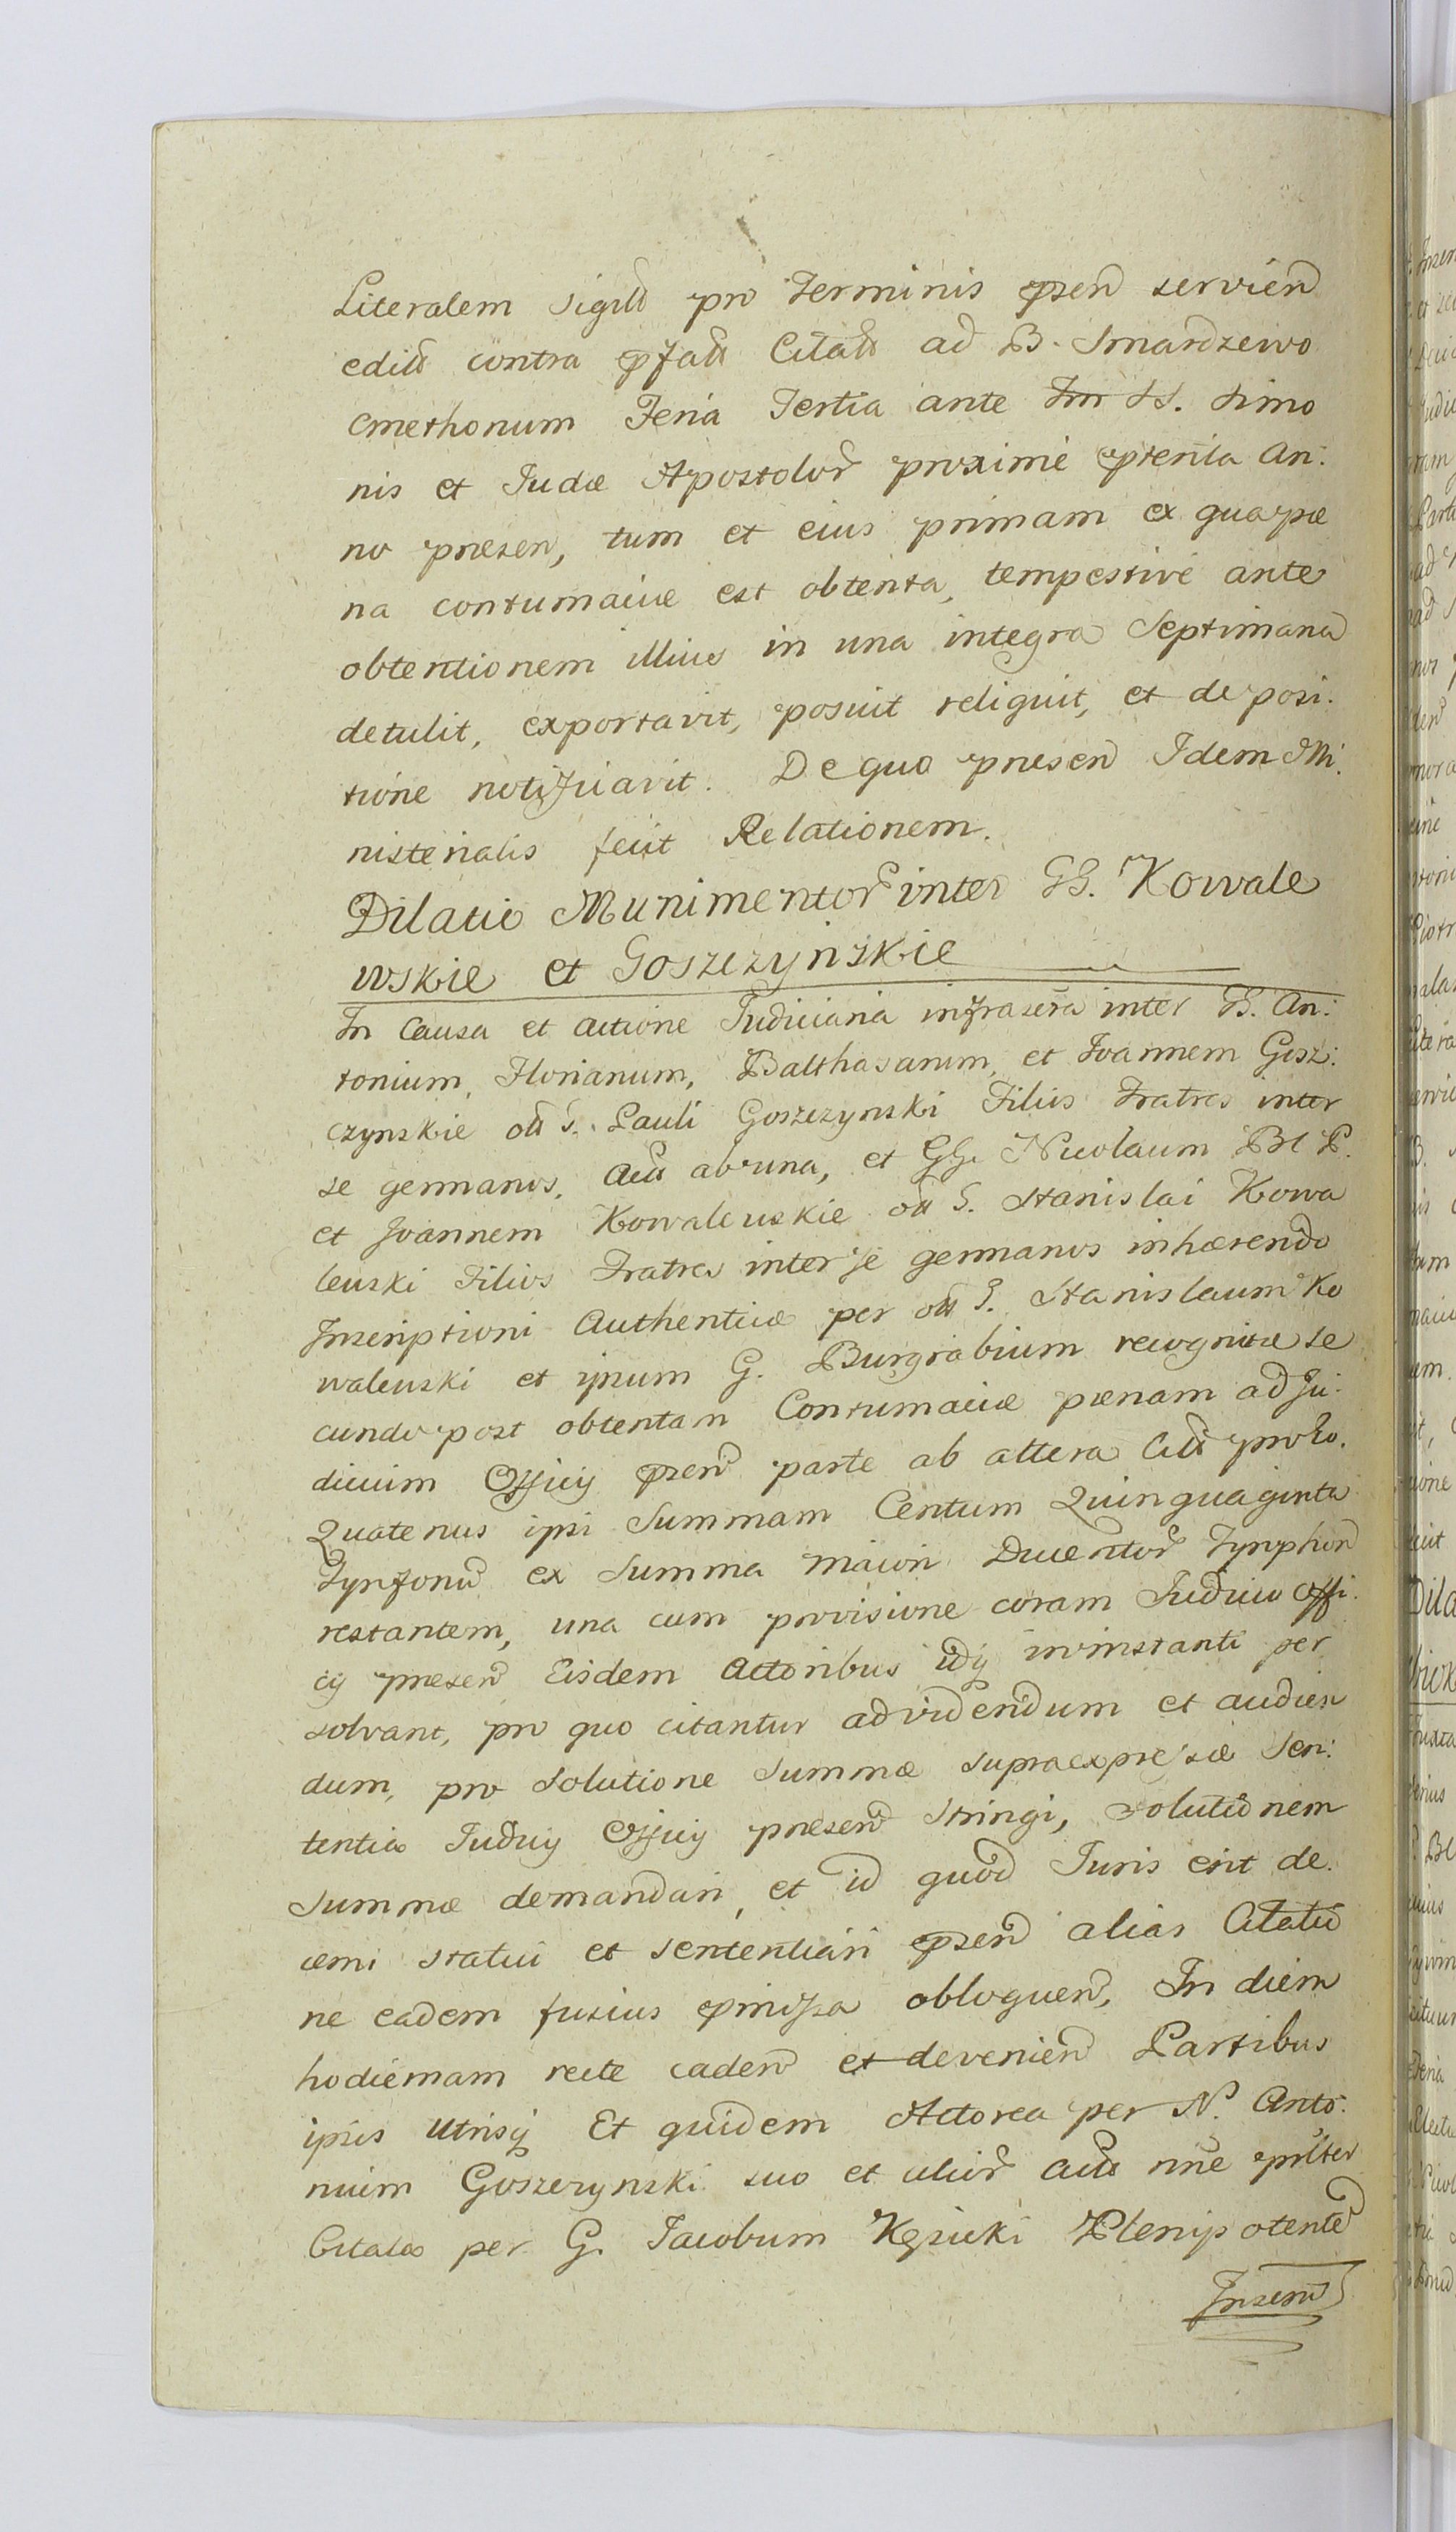 Literalem sigill pro Terminis prsen servien
edill contra prfatt Citatt ad B. Smardzewo
Cmethonum Feria Tertia ante SS. Simo
nis et Judæ Apostolor proxime prterita An:
no præsen, tum et eius primam ex qua pæ
na contumaciæ est obtenta, tempestivé ante
obtentionem illius in una integra Septimana
detulit, exportavit, posuit reliquit, et de posi:
tione notificavit. De quo præsen Idem Mi:
nisterialis fecit Relationem.
Dilatio Munimentor inter GG. Kowale
wskie et Goszczynskie
In Causa et actione Judiciaria infrascra inter GG. An:
tonium, Florianum, Balthasarum, et Joannem Gosz:
czynskie olt G. Pauli Goszczynski Filios Fratres inter
se germanos, Actt ab una, et GG. Nicolaum
et Joannem Kowalewskie olt G. Stanislai Kowa
lewski Filios Fratres inter se germanos inhærendo
Inscriptioni Authenticæ per olt G. Stanislaum Ko
walewski et ipsum G. Burgrabium recognitæ se
cundo post obtentam Contumaciæ pænam ad Ju:
dicium Officij prsen parte ab altera Citt pro eo.
Quatenus ipsi Summam Centum Quinquaginta
Tynfonu ex Summa maiori Ducentor Tynphon
restantem, una cum provisione coram Judicio Offi:
cij præsen Eisdem Actoribus idq in instanti per
solvant, pro quo citantur ad videndum et audien
dum, pro Solutione Summæ supraexpressæ Sen:
tentia Judicij Officij præsen stringi, solutionem
Summæ demandari, et id quod Juris erit de:
cerni statui et sententiari prsen alias Citatio
ne eadem fusius prmissa obloquen, In diem
hodiernam recte caden et devenien Partibus
ipsis utrisq Et quidem Actorea per N. Anto:
nium Goszczynski suo et alior Actt nne prsliter
Citata per G. Jacobum Kęsicki Plenipotente
Inseru